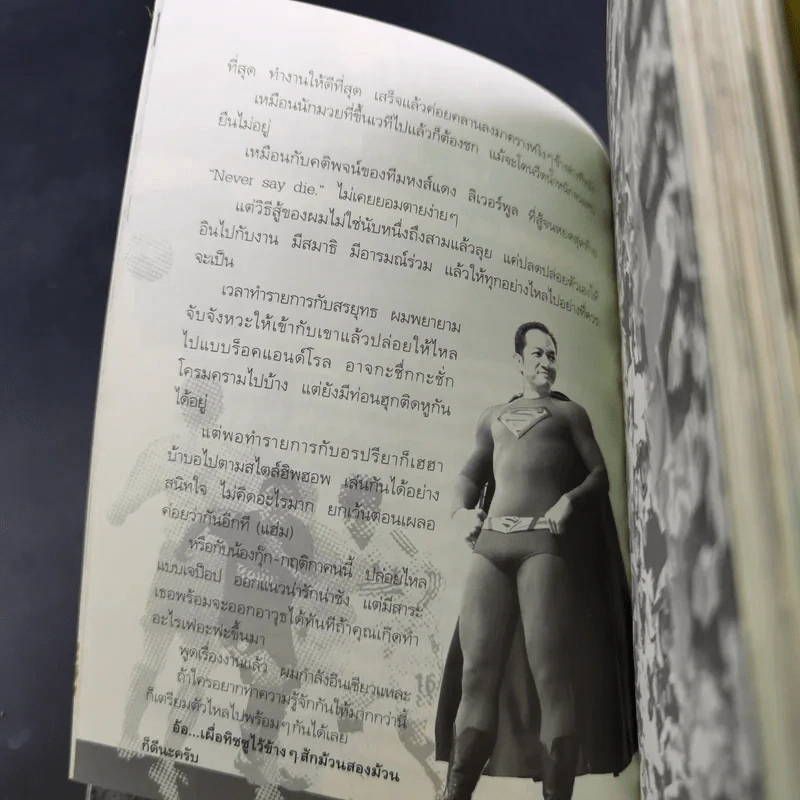 ที่สุด ทำงานให้ดีที่สุด เสร็จแล้วค่อยคลานลงมาครางหงิงๆ
เหมือนนักมวยที่ขึ้นเวทีไปแล้วก็ต้องชก แม้จะโดน
ยืนไม่อยู่
เหมือนกับคติพจน์ของทีมหงส์แดง ลิเวอร์พูล ที่สู้จนหยด
"Never say die." ไม่เคยยอมตายง่ายๆ
แต่วิธีสู้ของผมไม่ใช่นับหนึ่งถึงสามแล้วลุย แค่ปลดปล่อยตัวเองให้
อินไปกับงาน มีสมาธิ มีอารมณ์ร่วม แล้วให้ทุกอย่างไหลไปอย่างที่ควร
จะเป็น
เวลาทำรายการกับสรยุทธ ผมพยายาม
จับจังหวะให้เข้ากับเขาแล้วปล่อยให้ไหล
ไปแบบร็อคแอนด์โรล อาจกะชึ่กกะชั่ก
โครมครามไปบ้าง แต่ยังมีท่อนฮุกติดหูกัน
ได้อยู่
แต่พอทำรายการกับอรปรียาก็เฮฮา
บ้าบอไปตามสไตล์ฮิพฮอพ เล่นกันได้อย่าง
สนิทใจ ไม่คิดอะไรมาก ยกเว้นตอนเผลอ
ค่อยว่ากันอีกที (แฮ่ม)
หรือกับน้องกุ๊ก-กฤติกาคนนี้ ปล่อยไหล
แบบเจป๊อป ออกแนวน่ารักน่าชัง แต่มีสาระ
เธอพร้อมจะออกอาวุธได้ทันทีถ้าคุณเกิดทำ
อะไรเฟอะฟะขึ้นมา
พูดเรื่องงานแล้ว ผมกำลังอินเชียวแหละ
ถ้าใครอยากทำความรู้จักกันให้มากกว่านี้
ก็เตรียมตัวไหลไปพร้อมๆกันได้เลย
อ้อ...เผื่อทิชชูไว้ข้างๆ สักม้วนสองม้วน
ก็ดีนะครับ
16